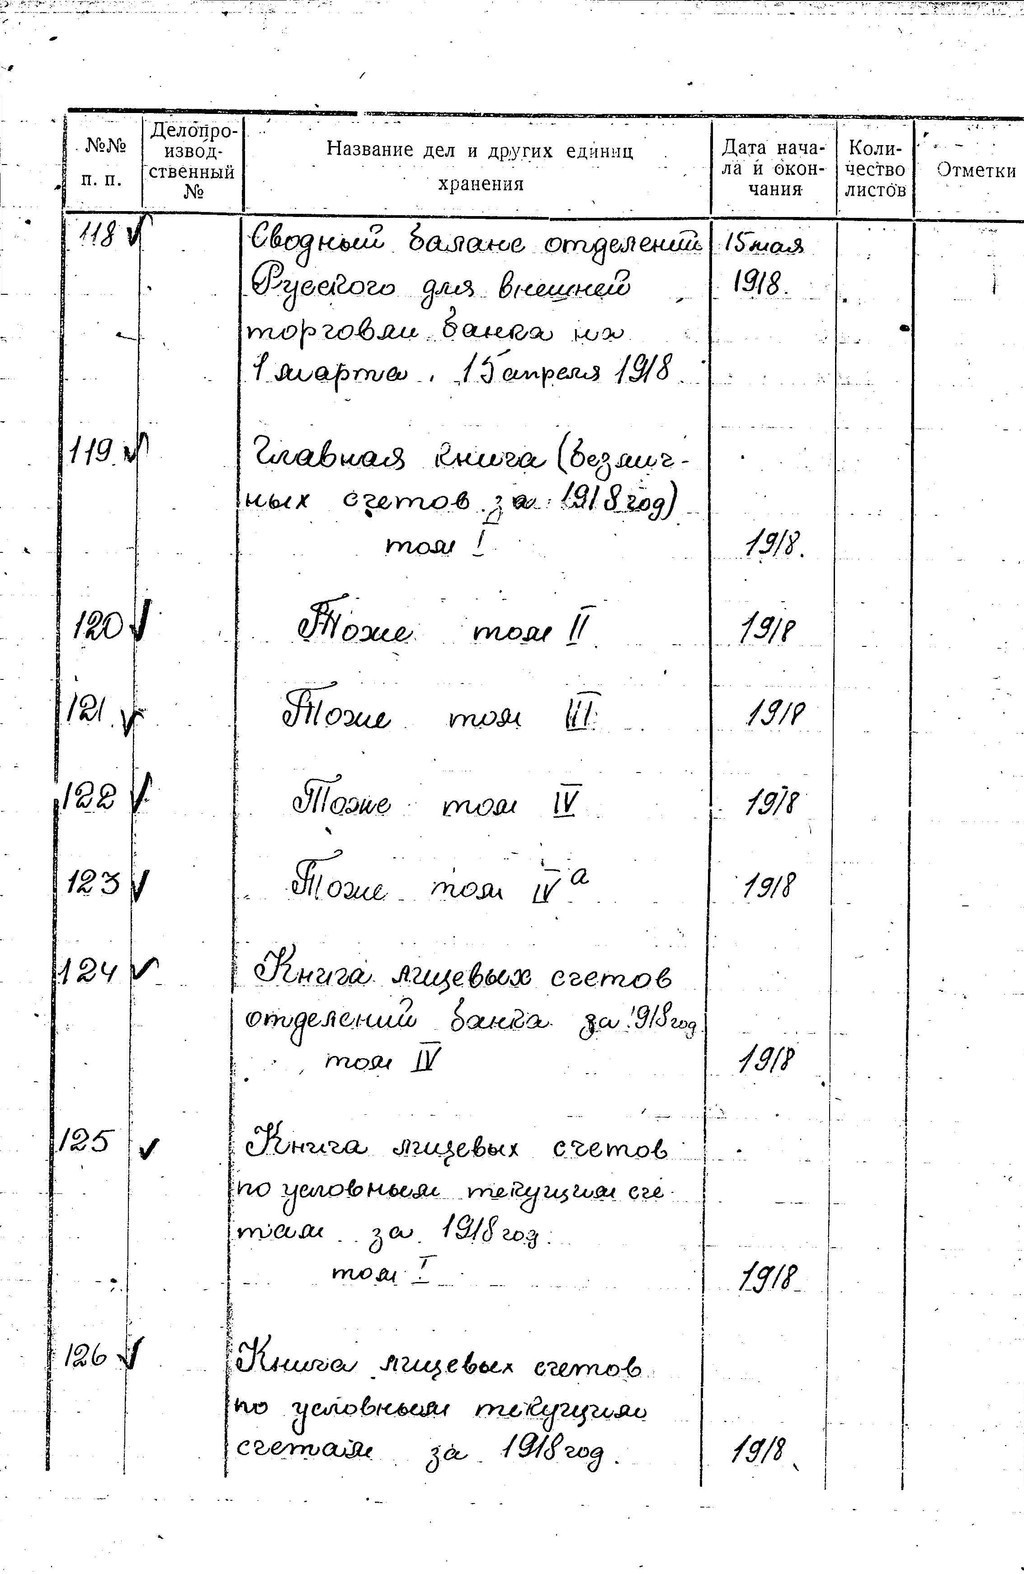 №№ п. п.
Делопро-
извод-
ственный
№
Название дел и других единиц
хранения
Дата нача-
ла и окон-
чания
Коли-
чество
листов
Отметки
118 Сводный баланс отделений 15 мая
Русского для внешней 1918.
торговли банка на
1 марта, 15 апреля 1918
119. Главная книга (безлич-
ных счетов за 1918 год)
том I 1918.
120 Тоже том II 1918
121. Тоже том III 1918
122 Тоже том IV 1918
123 Тоже том IVа 1918
124 Книга лицевых счетов
отделений банка за 1918 год
том IV 1918
125 Книга лицевых счетов
по условным текущим сче-
там за 1918 год.
том I 1918
126 Книга лицевых счетов
по условным текущим
счетам за 1918 год. 1918